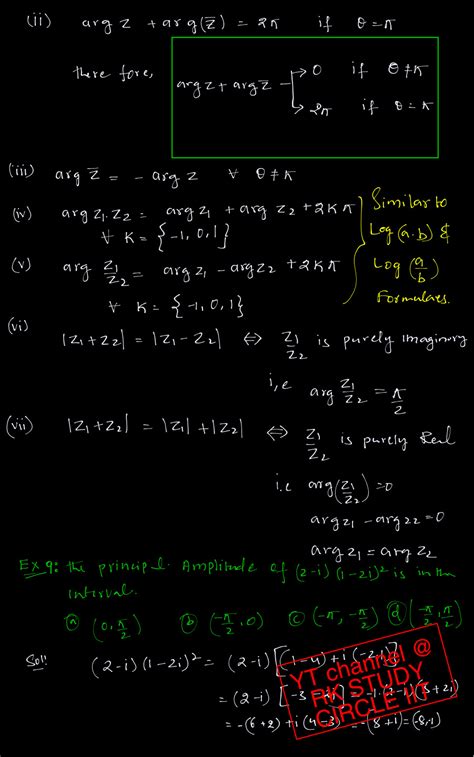 (ii) arg z + arg(z̅) = 2π if θ = π
there fore, arg z + arg z̅ → 0 if θ ≠ π
→ 2π if θ = π
(iii) arg z̅ = - arg z ∀ θ ≠ π
(iv) arg z₁.z₂ = arg z₁ + arg z₂ + 2kπ
∀ K = {-1, 0, 1}
(v) arg z₁/z₂ = arg z₁ - arg z₂ + 2kπ
∀ K = {-1, 0, 1}
Similar to
Log (a.b) &
Log (a/b)
Formulaes.
(vi) |z₁+z₂| = |z₁-z₂| ⇔ z₁/z₂ is purely Imaginary
i,e arg z₁/z₂ = π/2
(vii) |z₁+z₂| = |z₁|+|z₂| ⇔ z₁/z₂ is purely Real
i.e arg(z₁/z₂) = 0
arg z₁ - arg z₂ = 0
arg z₁ = arg z₂
Ex 9: the principal Amplitude of (2-i)(1-2i)² is in the
interval.
(a) (0, π/2) (b) (-π/2, 0) (c) (-π, -π/2) (d) (-π/2, π/2)
Sol: (2-i)(1-2i)² = (2-i)[(1-4)+i(-2.1)]
= (2-i)[-3-4i] = -1(2-i)(3+2i)
= -(6+2)+i(4-3) = -(8+1) = (-8,1)
YT channel @
RK STUDY
CIRCLE IIT